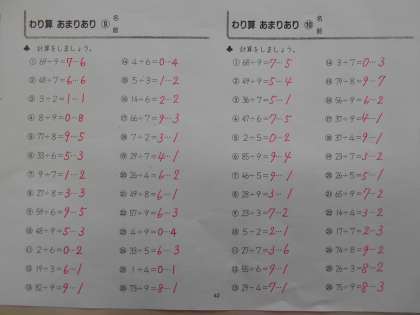 わり算 あまりあり ⑨
名前
♣ 計算をしましょう。
① 69÷9=7…6
② 48÷7=6…6
③ 3÷2=1…1
④ 8÷9=0…8
⑤ 77÷8=9…5
⑥ 33÷6=5…3
⑦ 9÷7=1…2
⑧ 27÷8=3…3
⑨ 59÷6=9…5
⑩ 48÷9=5…3
⑪ 2÷6=0…2
⑫ 19÷3=6…1
⑬ 82÷9=9…1
⑭ 4÷6=0…4
⑮ 5÷3=1…2
⑯ 14÷6=2…2
⑰ 66÷7=9…3
⑱ 7÷2=3…1
⑲ 29÷7=4…1
⑳ 26÷4=6…2
㉑ 49÷8=6…1
㉒ 57÷9=6…3
㉓ 4÷9=0…4
㉔ 33÷5=6…3
㉕ 1÷4=0…1
㉖ 73÷9=8…1
わり算 あまりあり ⑩
名前
♣ 計算をしましょう。
① 68÷9=7…5
② 49÷9=5…4
③ 36÷7=5…1
④ 47÷6=7…5
⑤ 2÷5=0…2
⑥ 85÷9=9…4
⑦ 46÷5=9…1
⑧ 28÷9=3…1
⑨ 23÷3=7…2
⑩ 5÷2=2…1
⑪ 27÷7=3…6
⑫ 55÷6=9…1
⑬ 29÷4=7…1
⑭ 3÷7=0…3
⑮ 79÷8=9…7
⑯ 56÷9=6…2
⑰ 37÷9=4…1
⑱ 37÷4=9…1
⑲ 23÷7=3…2
⑳ 26÷5=5…1
㉑ 65÷9=7…2
㉒ 14÷4=3…2
㉓ 17÷7=2…3
㉔ 74÷8=9…2
㉕ 26÷3=8…2
㉖ 75÷9=8…3
42